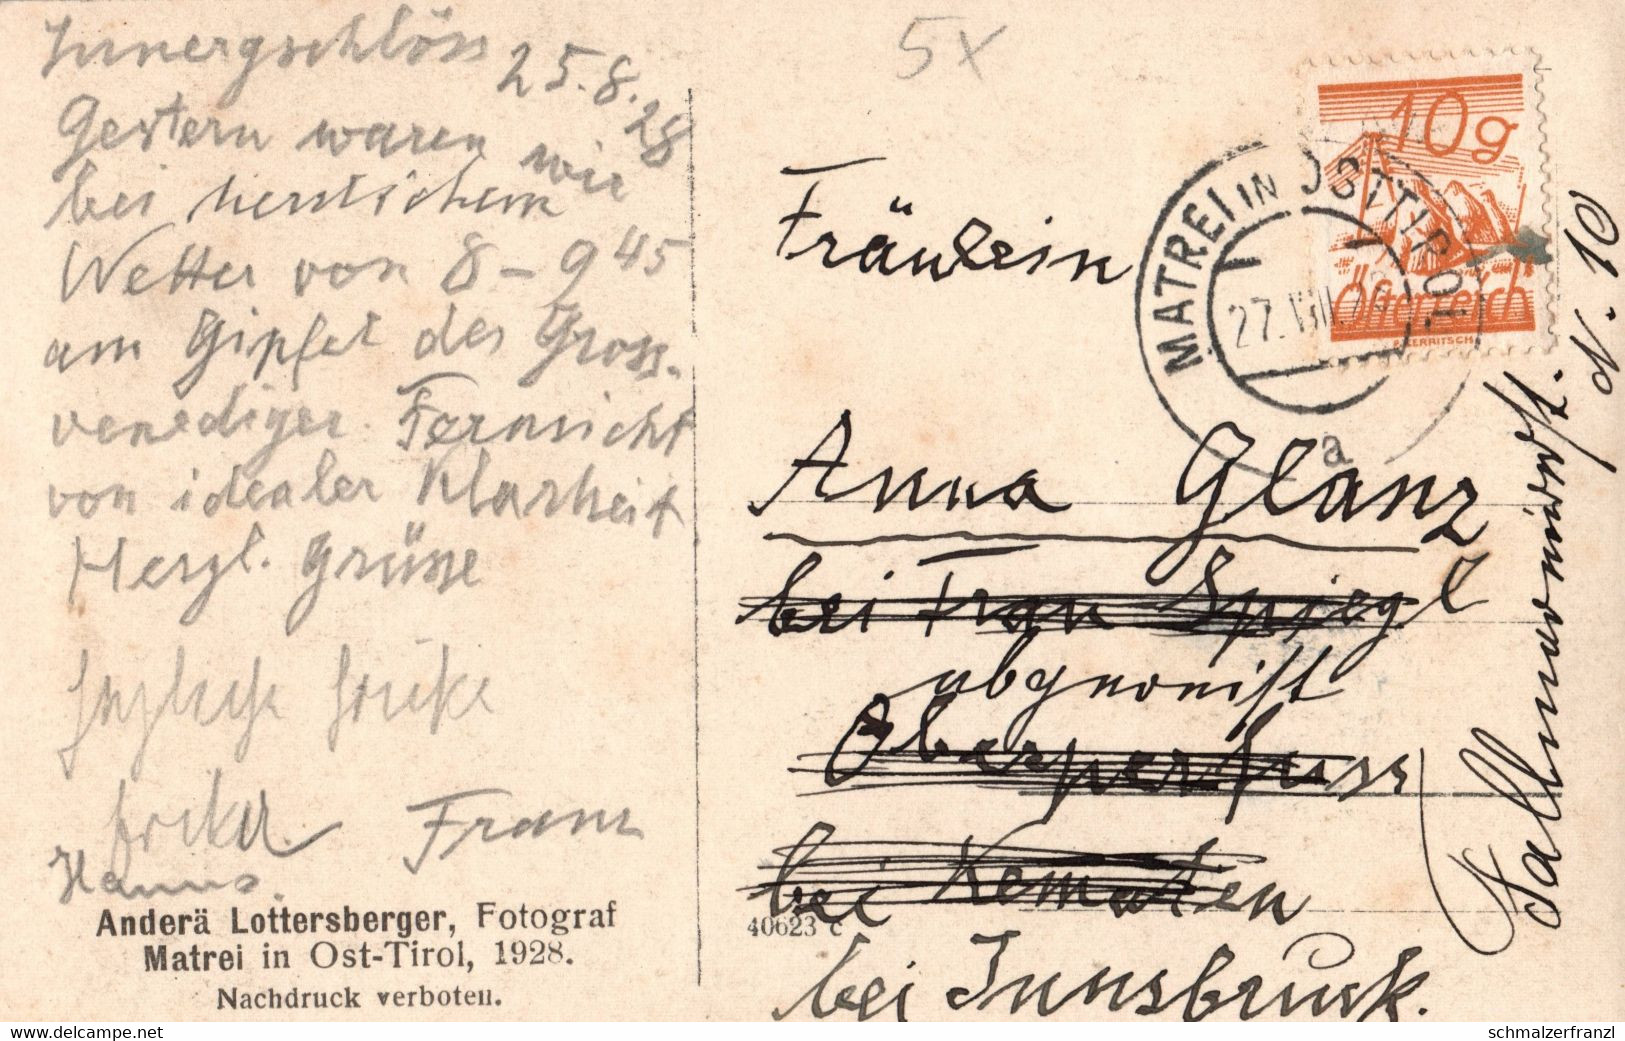 Innergschlöss
25.8.28
Gestern waren wir
bei herrlichem
Wetter von 8 – 9 45
am Gipfel des Gross.
venediger. Fernsicht
von idealer Klarheit
Herzl. Grüsse
Franz
Hanns.
Anderä Lottersberger, Fotograf
Matrei in Ost-Tirol, 1928.
Nachdruck verboten.
5x
10g
Österreich
MATREI IN OSTTIROL
27. VIII.
a
Fräulein
Anna Glanz
bei Frau Spiegl
abgereist
Oberperfuss
bei Kematen
bei Innsbruck.
N. 10
40623 c
schmalzerfranzl
www.delcampe.net